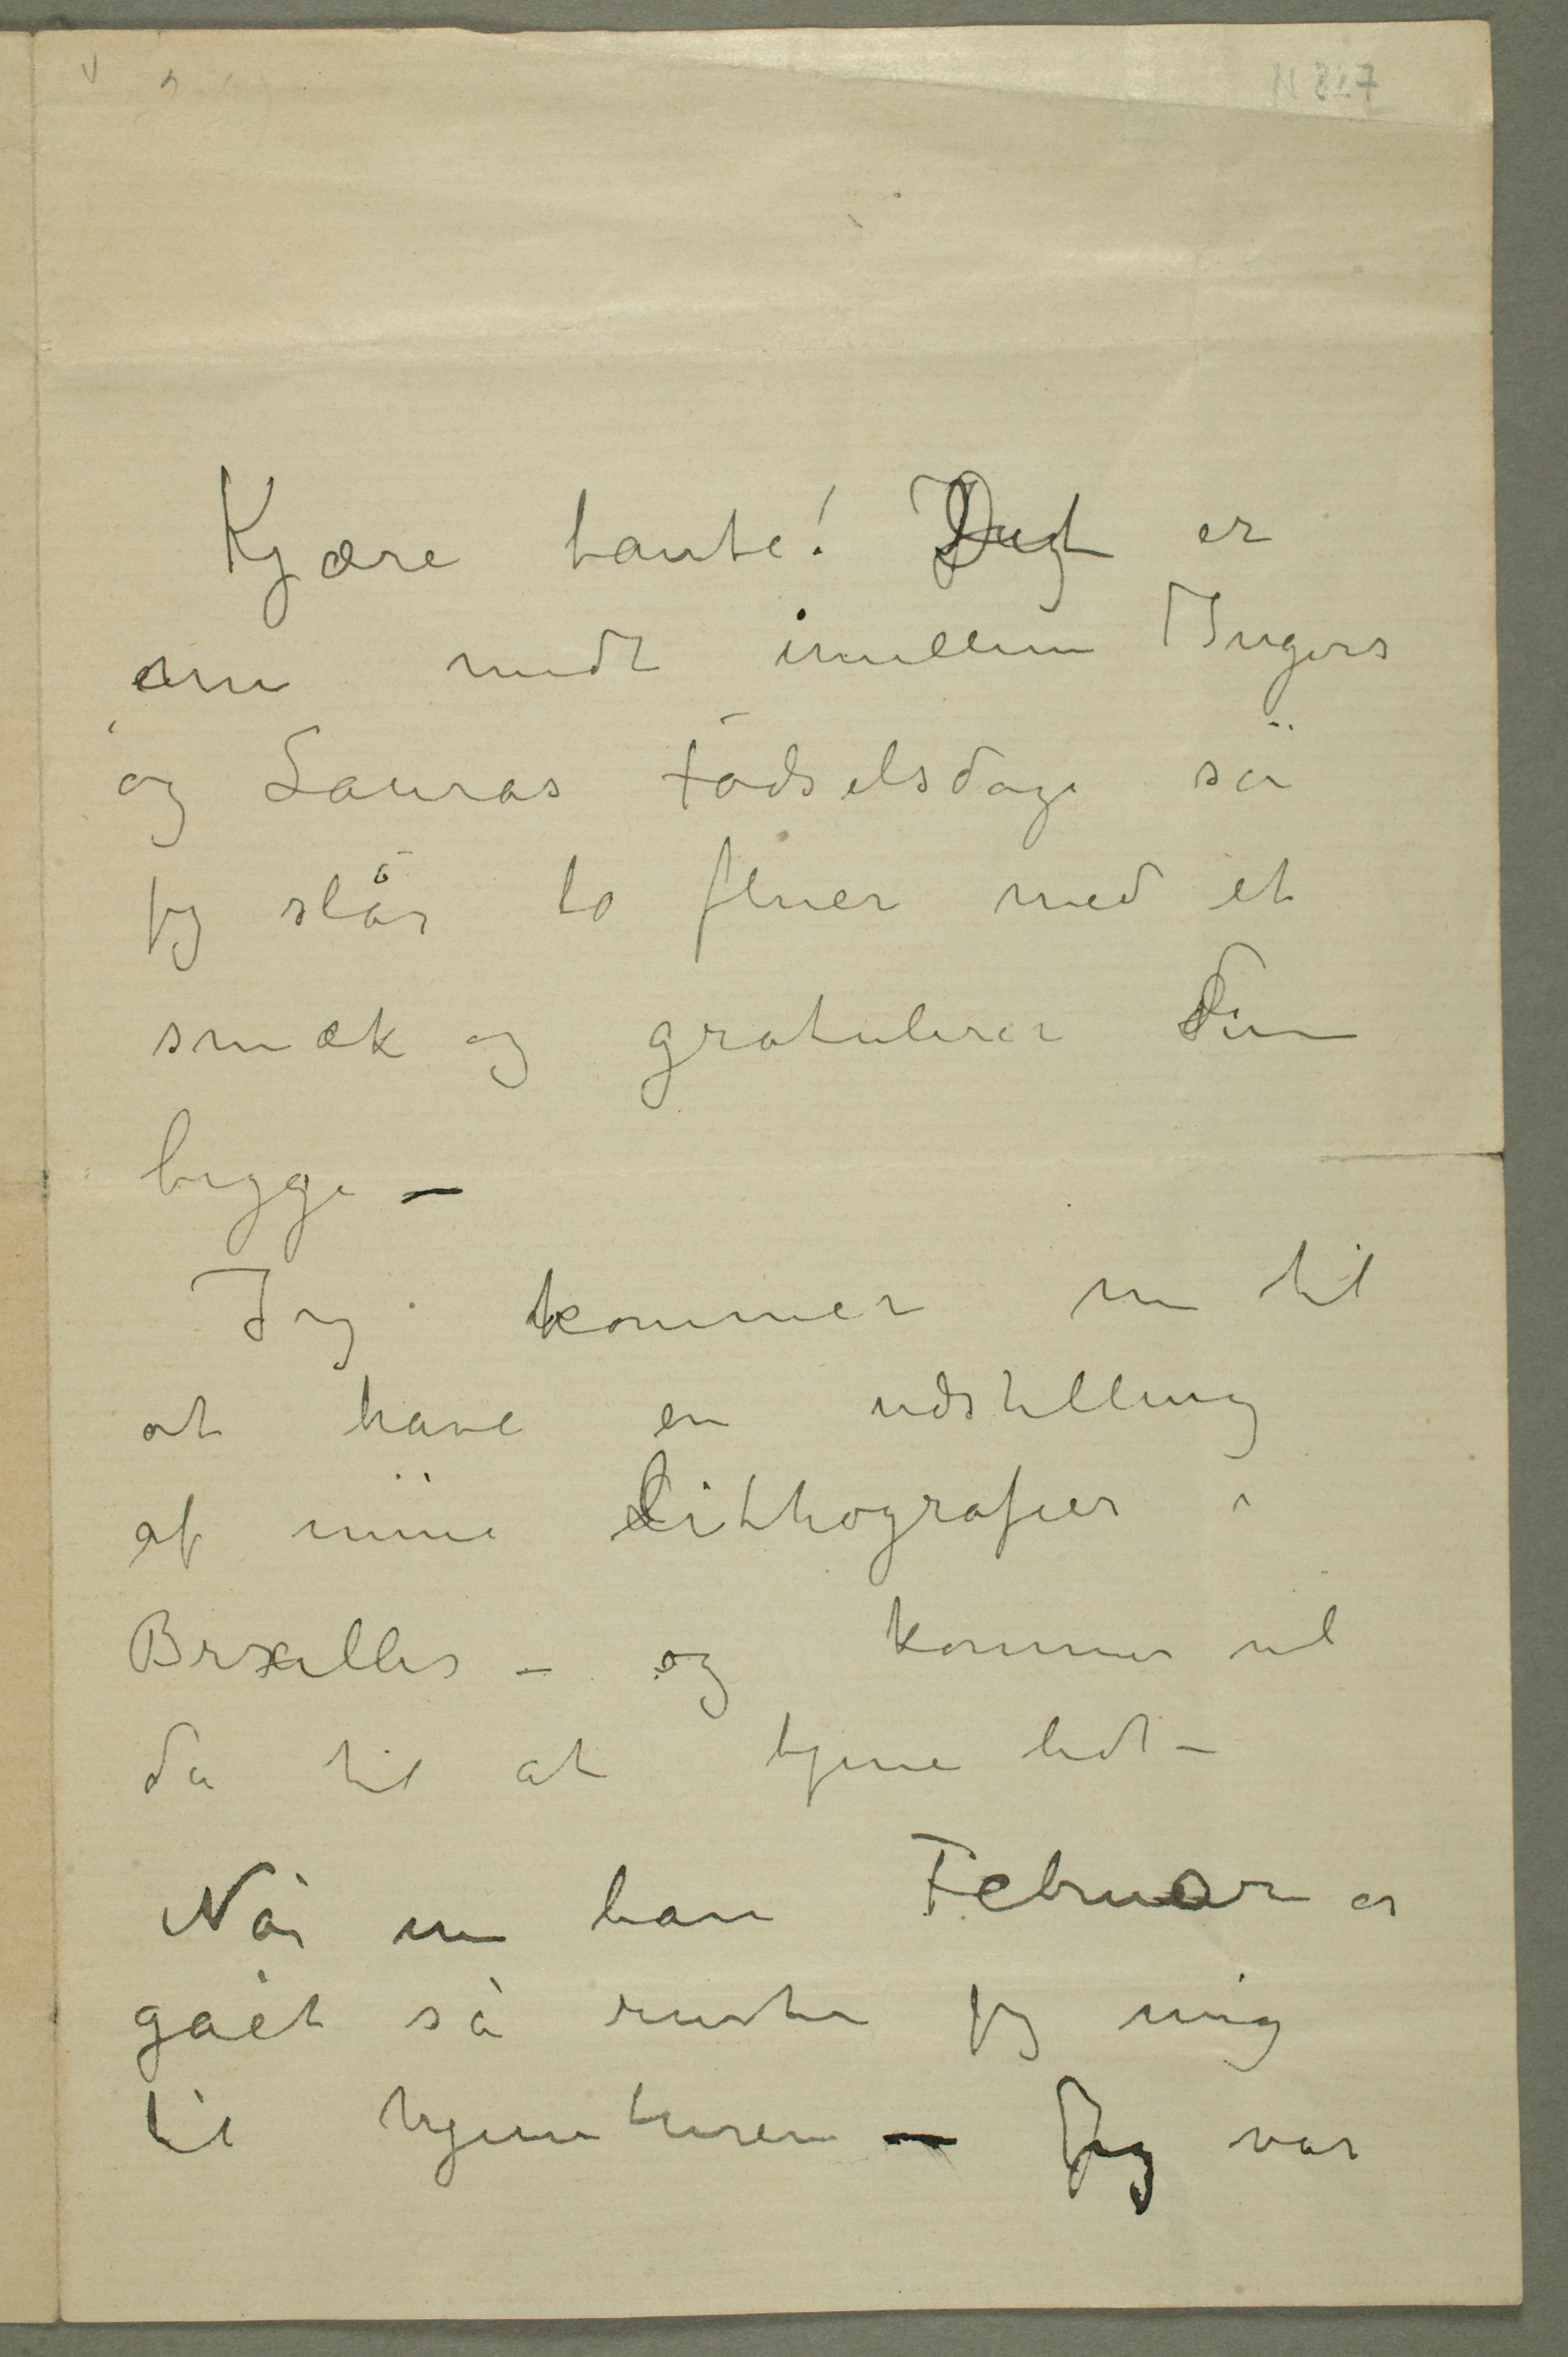 N 827
Kjære tante! Det er
nu midt imellem Ingers
og Lauras Fødselsdage så
jeg slår to fluer med et
smæk og gratulerer dem
begge –
Jeg kommer nu til
at have en udstilling
af mine Lithografier i
Brxelles – og kommer vel
da til at tjene lidt –
Når nu bare Februar er
gåét så ruster jeg mig
til hjemturen – Jeg var